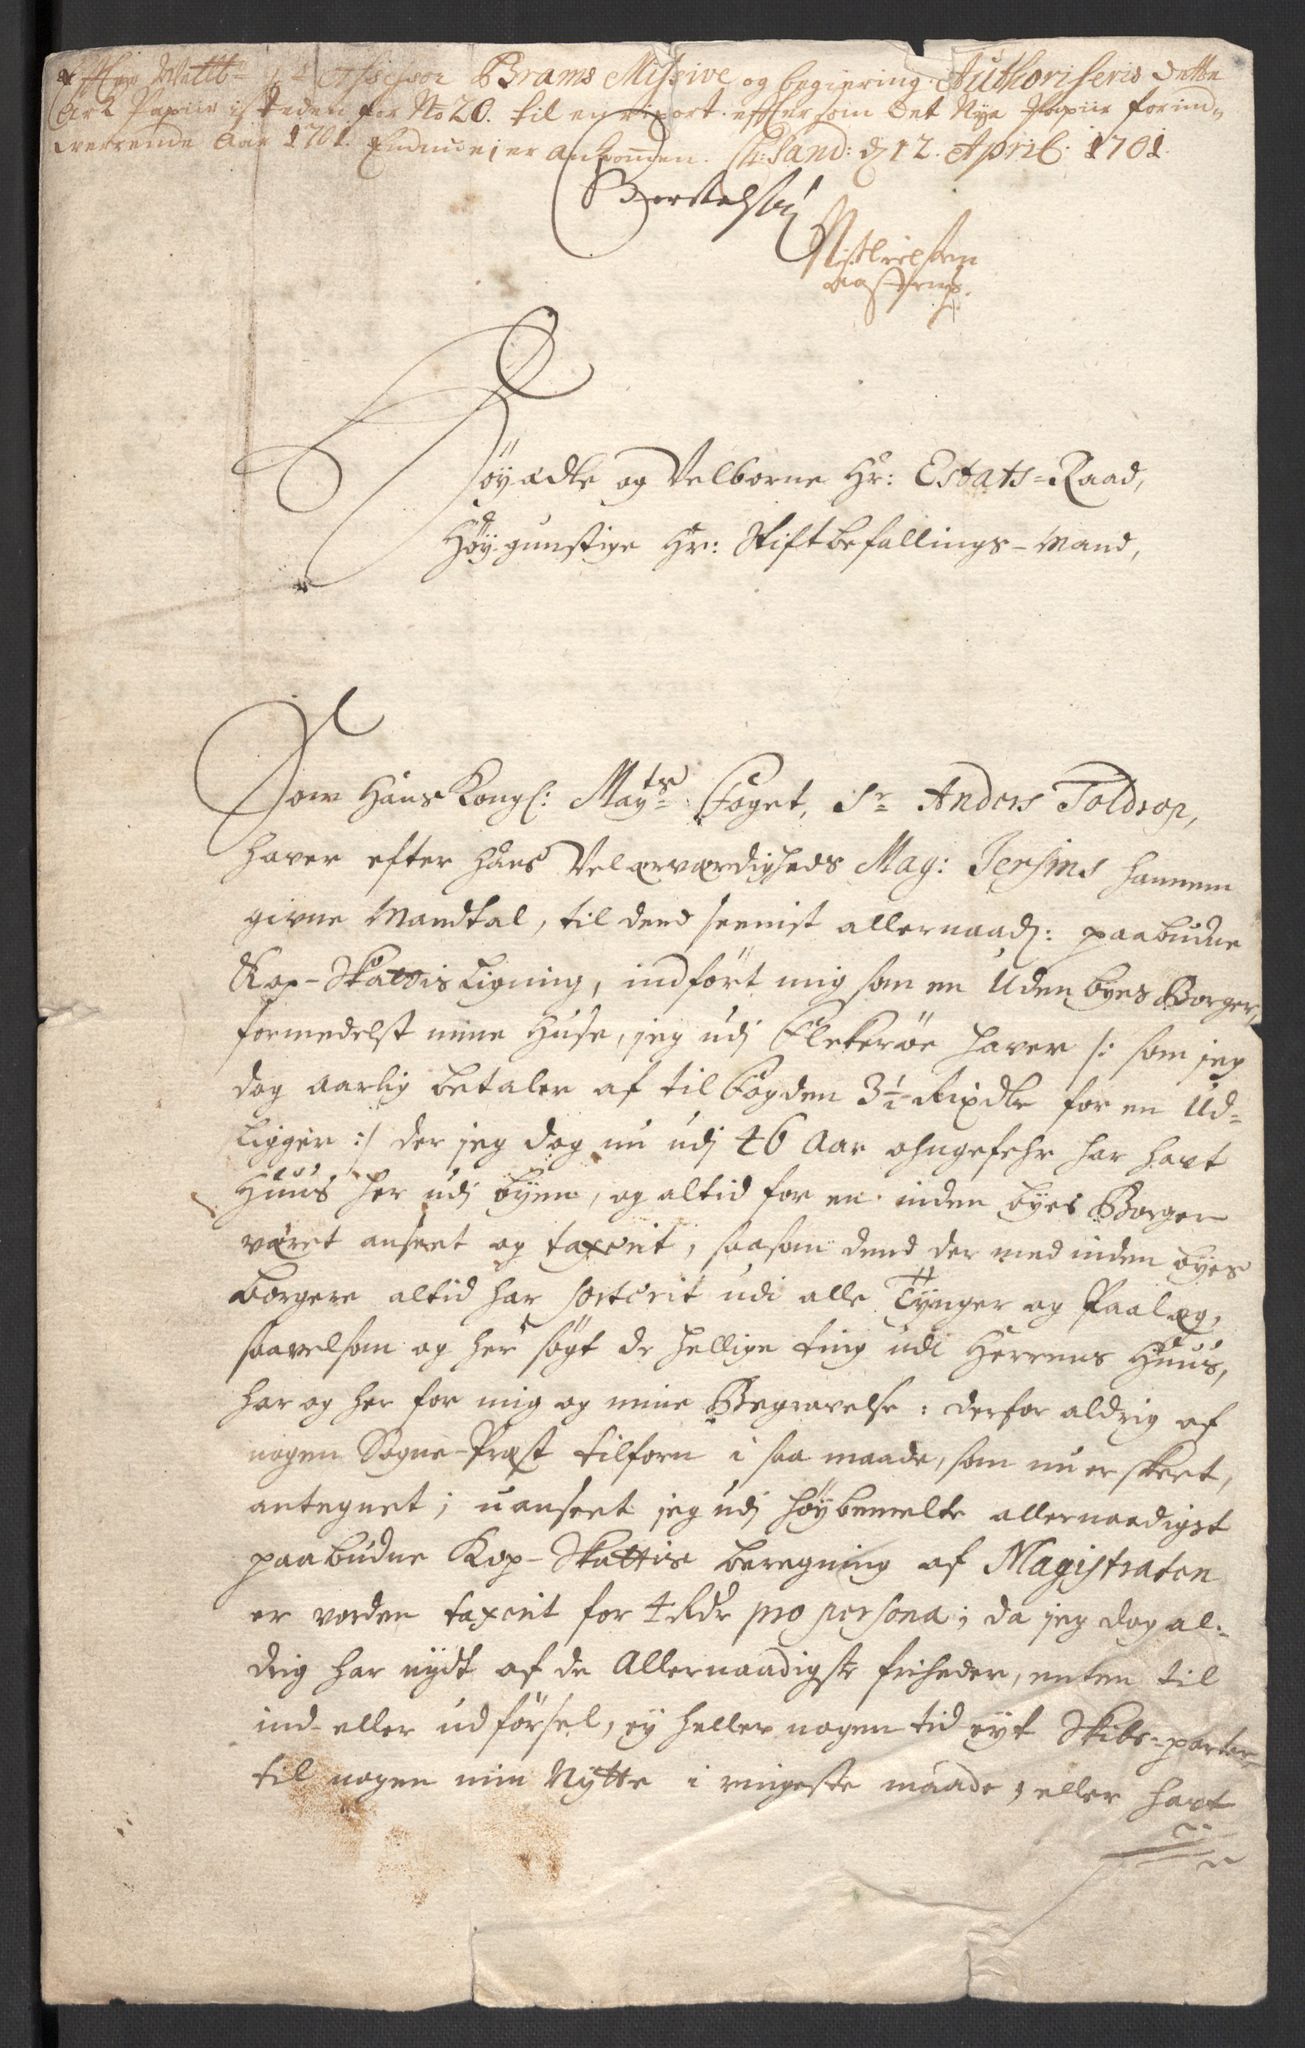 Effter Welb: Hr Assessor Brams Missive og begiering Authoriseris dette
Ark Papiir i steden for No 20. til en report. effter som det Nye Papiir for ind-
werrende Aar 1701. Endnu ej er ankommen. Chr:Sand: d 12. April: 1701.
Høyædle og Velborne Hr: Estats-Raad,
Høygunstige Hr: Stiftbefallings-Mand,
Som Hans Kongl: Mayts Foget, Sr Anders Toldrop,
haver efter Hans Velærværdigheds Mag: Jersins hannem
givne Mandtal, til dend seenist allernaad: paabudne
Kop-Skattis Ligning, indført mig som en Uden byes Borger,
formedelst mine Huse, jeg udj Flekerøe haver /: som jeg
dog aarlig betaler af til Fogden 3½ Rixdlr for en Ud-
ligger :/ der jeg dog nu udj 46 Aar ohngefehr har haft
Huus her udj byen, og altid for en inden byes Borger
været anseet og taxerit, saasom dend der med inden byes
Borgere altid har sorterit udi alle Tynger og Paalæg,
saavelsom og her søgt de hellige ting udi Herrens Huus,
har og her for mig og mine Begravelse: derfor aldrig af
nogen Sogne-Præst tilforn i saa maade, som nu er skeet,
antegnet; uanseet jeg udj høybemelte allernaadigst
paabudne Kop-Skattis beregning af Magistraten
er vorden taxerit for 4 Rdr pro persona; da jeg dog al-
drig har nydt af de Allernaadigste friheder, enten til
ind- eller udførsel, ey heller nogen tid eyt Skibs-parter
til nogen min Nytte i ringeste maade, eller haft